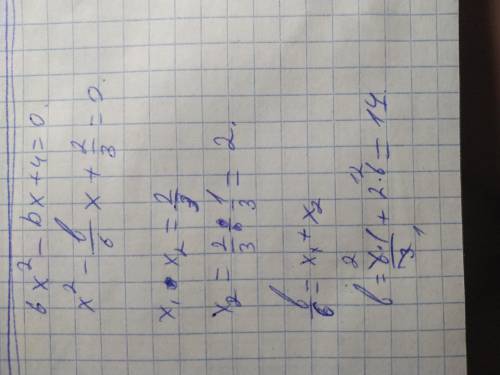 6x² - bx + 4 = 0.
x² - b/6 x + 2/3 = 0.
x₁ • x₂ = 2/3
x₂ = 2/3 : 1/3 = 2.
b/6 = x₁ + x₂
b = 6·1/3 + 2·6 = 14.